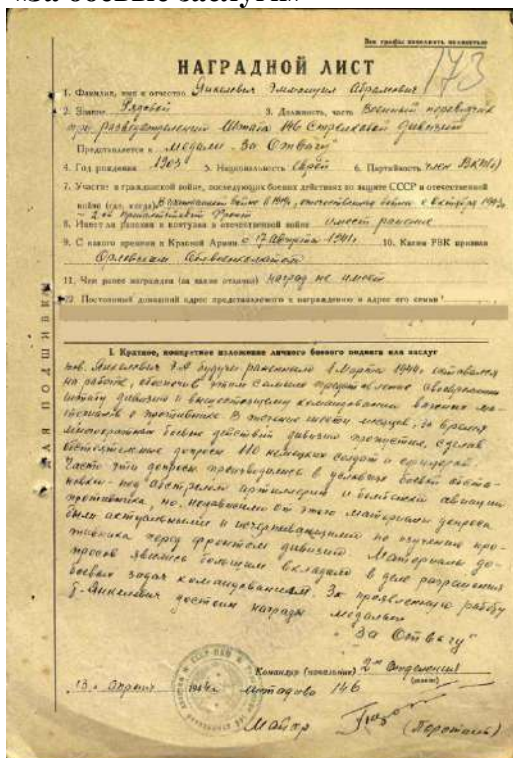 «За боевые заслуги»
Все графы заполнять полностью
173
НАГРАДНОЙ ЛИСТ
1. Фамилия, имя и отчество Янкелевич Эммануил Абрамович
2. Звание Рядовой 3. Должность, часть Военный переводчик
при разведотделении Штаба 146 Стрелковой дивизии
Представляется к медали "За Отвагу"
4. Год рождения 1903 5. Национальность Еврей 6. Партийность член ВКП(б)
7. Участие в гражданской войне, последующих боевых действиях по защите СССР и отечественной
войне (где, когда) В отечественной войне с октября 1943
- 2-ой Прибалтийский Фронт
8. Имеет ли ранения и контузии в отечественной войне имеет ранение
9. С какого времени в Красной Армии с 17 Августа 1941 г. 10. Каким РВК призван
Орловским Облвоенкоматом
11. Чем ранее награжден (за какие отличия) наград не имеет
12. Постоянный домашний адрес представляемого к награждению и адрес его семьи
ДЛЯ ПОДШИВКИ
I. Краткое, конкретное изложение личного боевого подвига или заслуг
тов. Янкелевич Э.А. будучи раненным 1 Марта 1944г. оставался
на работе, обеспечив этим самым своевременно
штабу дивизии и вышестоящему командованию важных ма-
териалов о противнике. В течение шести месяцев, за время
многократных боевых действий дивизии пропустил, сделав
обстоятельные допросы 110 немецких солдат и офицеров.
Часто эти допросы производились в условиях боевой обста-
новки - под обстрелом артиллерии и бомбежкой авиации
противника, но, независимо от этого материалы допроса
были актуальными и исчерпывающими по изучению про-
тивника перед фронтом дивизии. Материалы до-
просов явились большим вкладом в деле разрешения
боевых задач командованием. За проявленную работу
т. Янкелевич достоин награды медалью
"За Отвагу"
Командир (начальник) 2го Отделения
"13" Апреля 1944 г. штадива 146
Майор